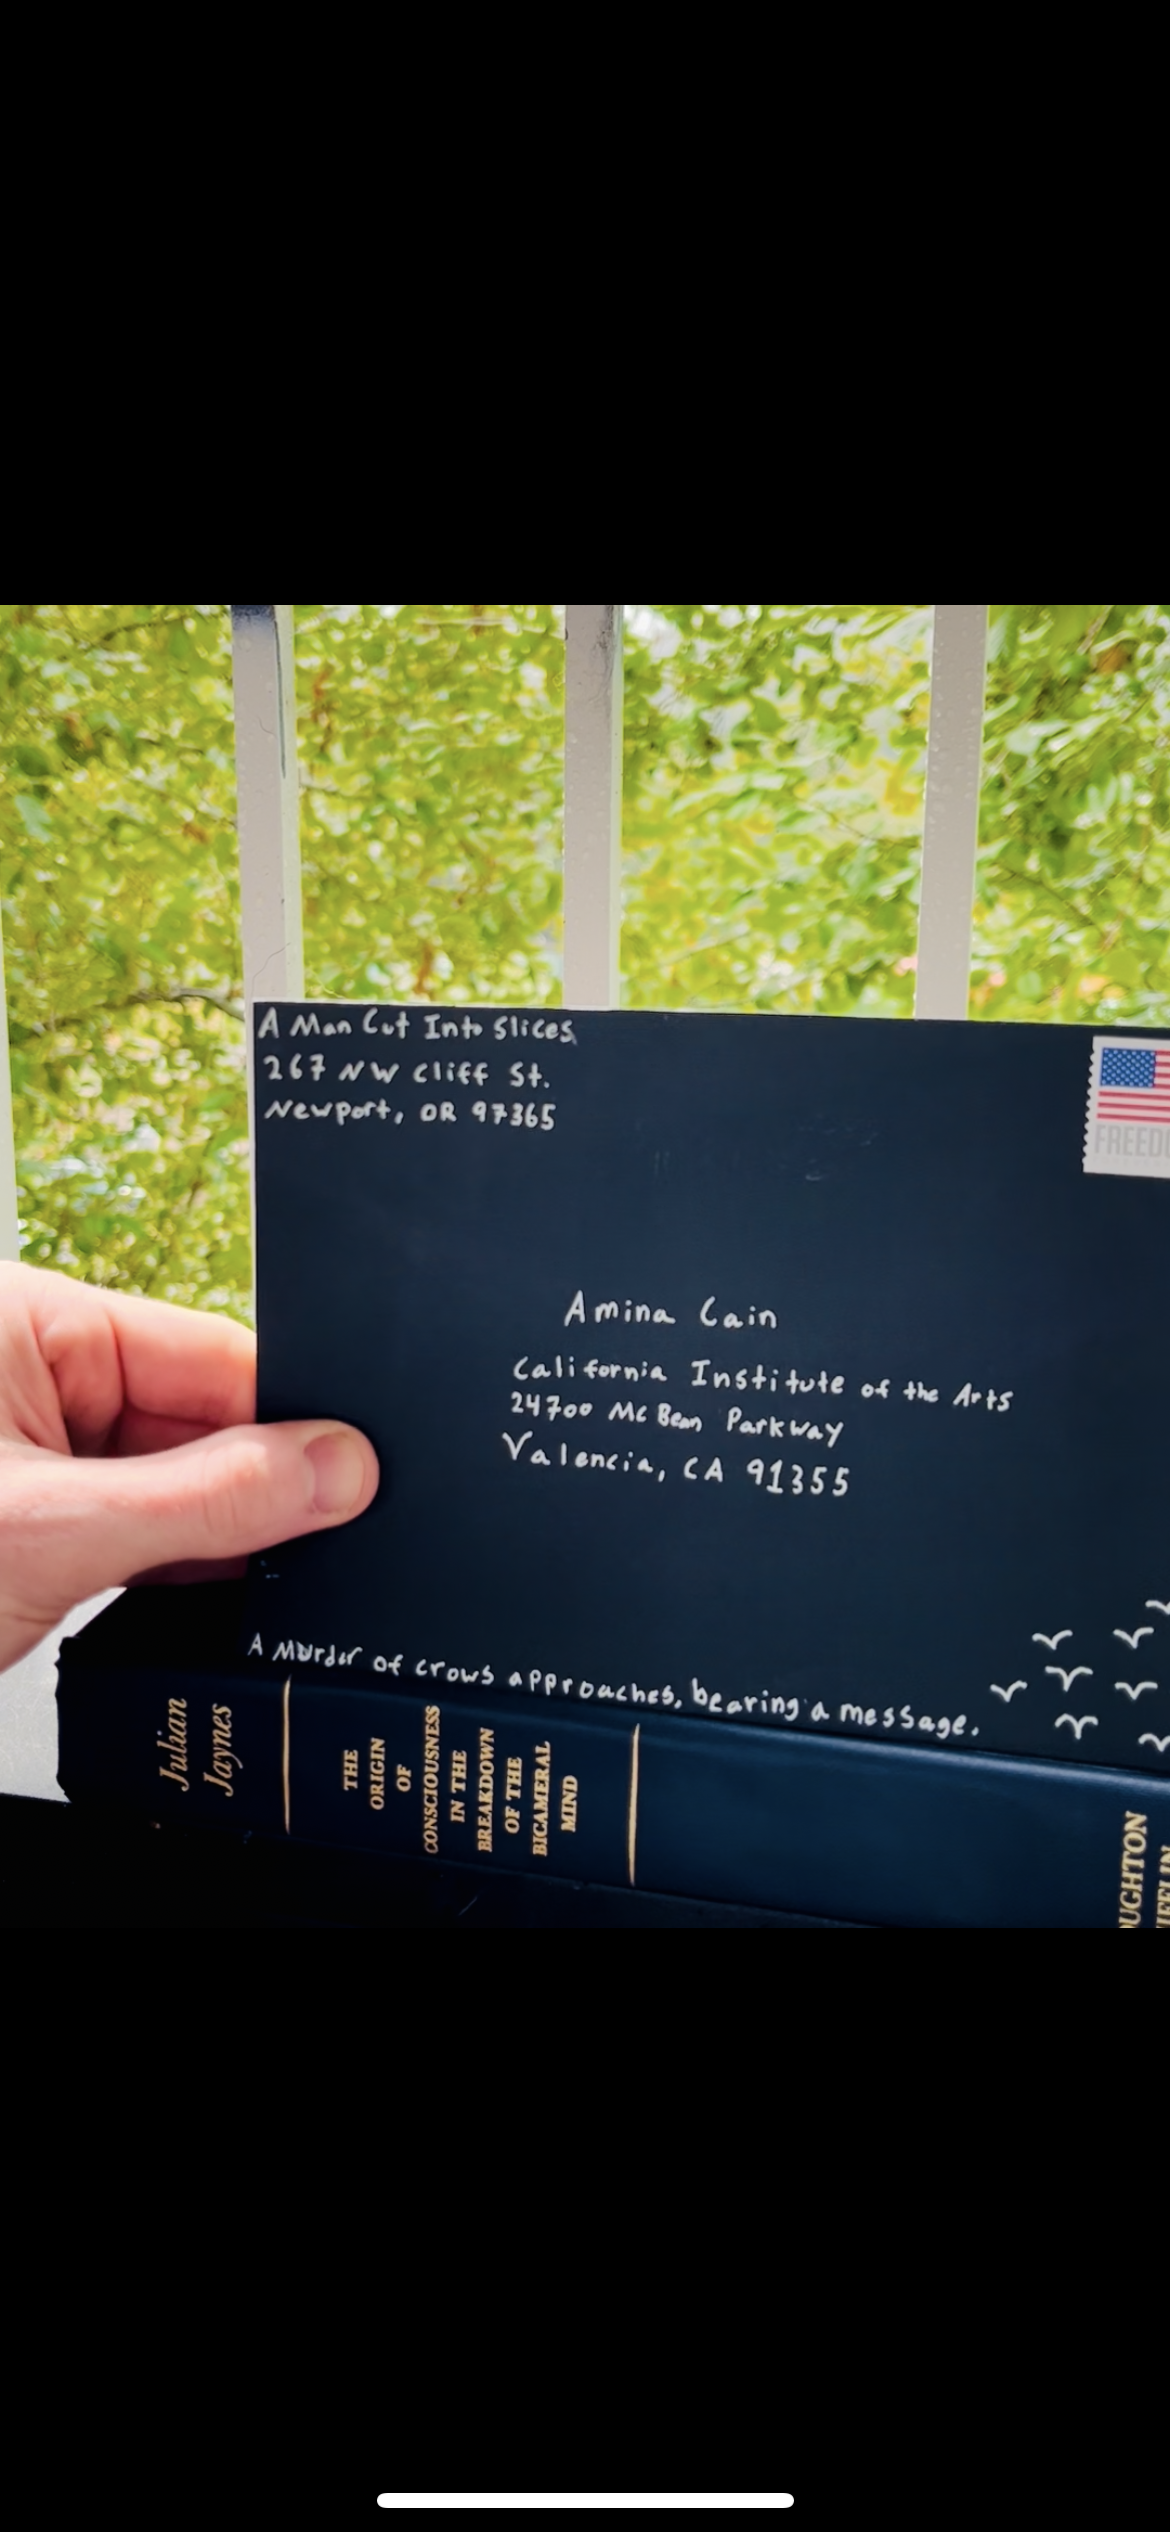 A Man Cut Into Slices
267 NW Cliff St.
Newport, OR 97365
FREEDO
Amina Cain
California Institute of the Arts
24700 McBean Parkway
Valencia, CA 91355
A Murder of crows approaches, bearing a message.
Julian
Jaynes
THE
ORIGIN
OF
CONSCIOUSNESS
IN THE
BREAKDOWN
OF THE
BICAMERAL
MIND
OUGHTON